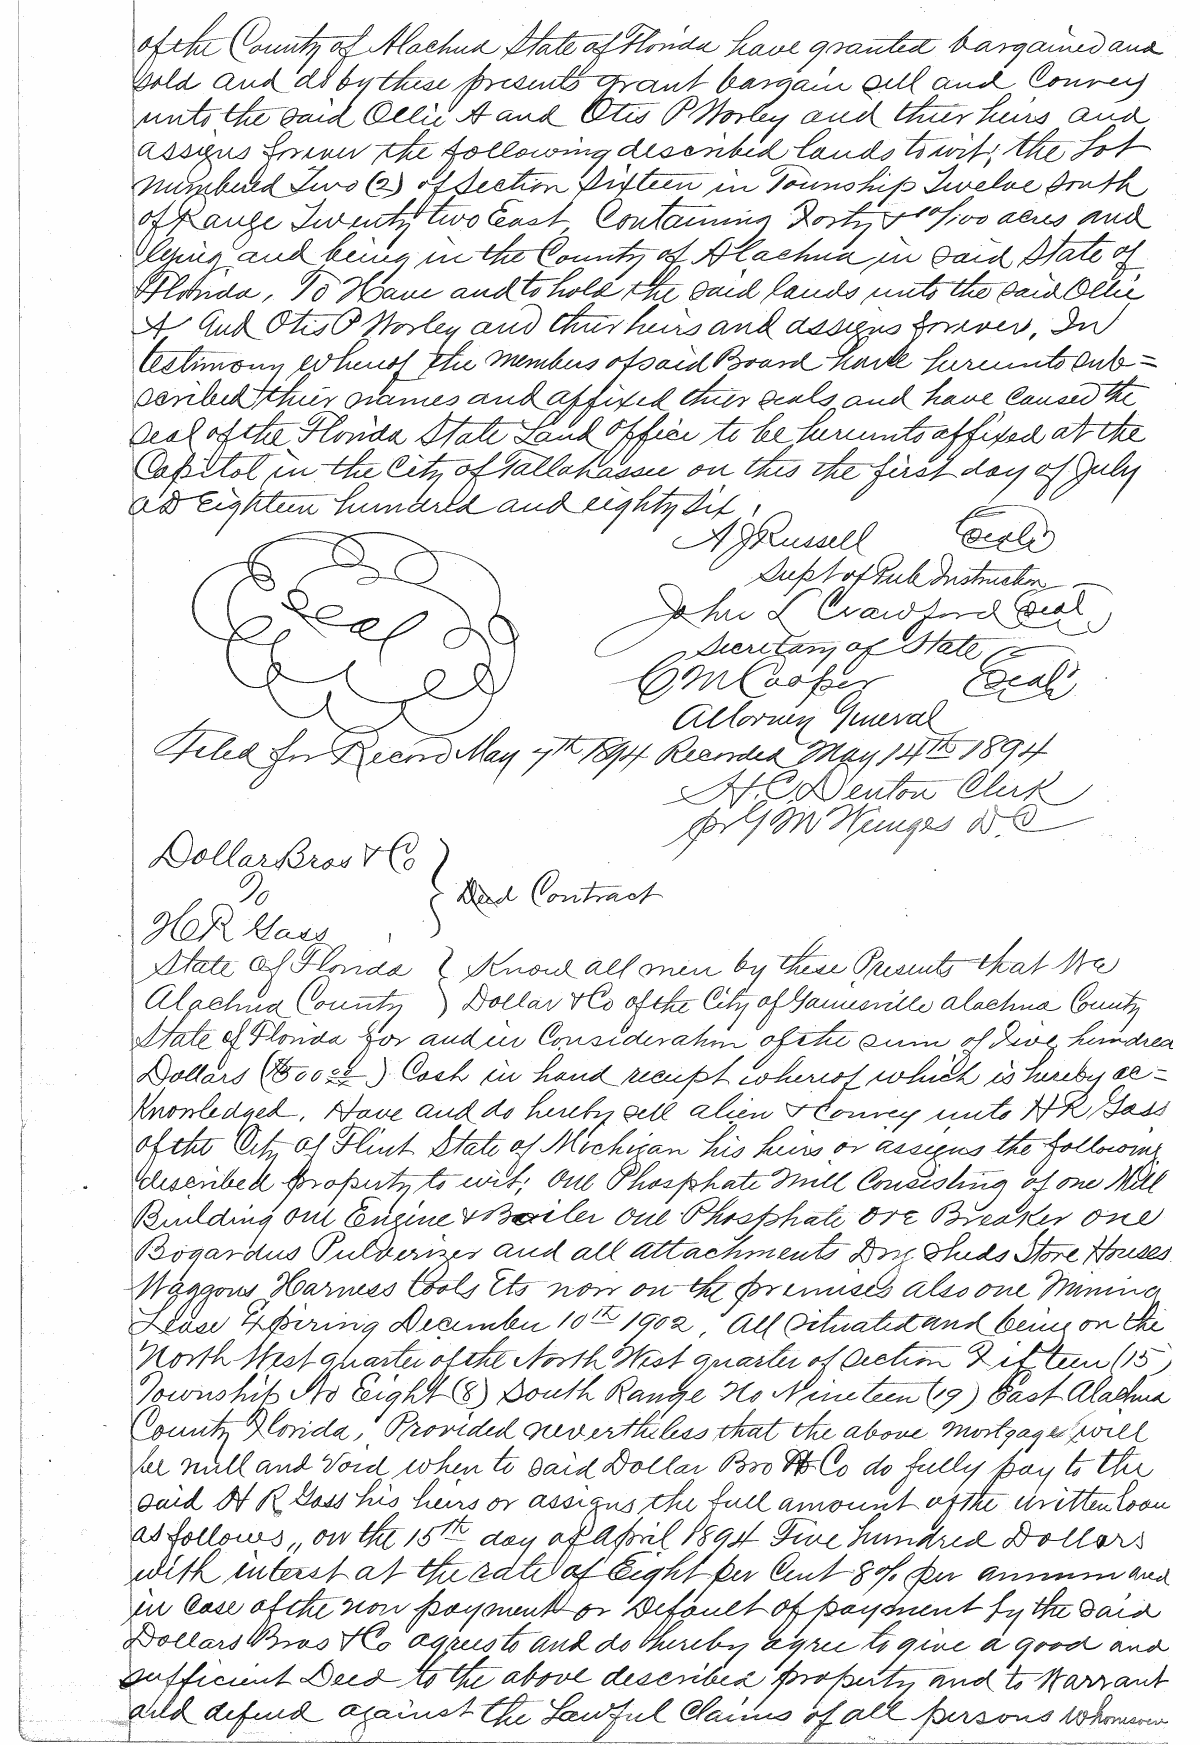 of the County of Alachua State of Florida have granted bargained and
sold and do by these presents grant bargain sell and Convey
unto the said Ollie A and Otis P Worley and thier heirs and
assigns forever the following described lands to wit; the Lot
numbered Two (2) of Section Sixteen in Township Twelve South
of Range Twenty two East, Containing Forty & 10/100 acres and
lying and being in the County of Alachua in said State of
Florida, To Have and to hold the said lands unto the said Ollie
A And Otis P Worley and thier heirs and assigns forever, In
testimony whereof the members of said Board have hereunto sub=
scribed thier names and affixed thier seals and have caused the
seal of the Florida State Land office to be hereunto affixed at the
Capitol in the City of Tallahassee on this the first day of July
AD Eighteen hundred and eighty six.
A J Russell (Seal)
Supt of Pub Instruction
Seal
John L Crawford Seal
Secretary of State
C M Cooper (Seal)
Attorney General
Filed for Record May 7th 1894 Recorded May 14th 1894
H. C. Denton Clerk
pr G M D C
Dollar Bros & Co
To } Deed Contract
H R Gass
State of Florida } Know all men by these Presents that We
Alachua County } Dollar & Co of the City of Gainesville Alachua County
State of Florida for and in Consideration of the sum of Five hundred
Dollars ($500.00) Cash in hand receipt whereof which is hereby ac=
knowledged, Have and do hereby sell alien & convey unto H R Gass
of the City of Flint State of Michigan his heirs or assigns the following
described property to wit; One Phosphate Mill Consisting of one Mill
Building one Engine & Boiler One Phosphate ore Breaker one
Bogardus Pulverizer and all attachments Dry Sheds Store Houses
Waggons Harness tools Etc now on the premises also one Mining
Lease Expiring December 10th 1902, All situated and being on the
North West quarter of the North West quarter of Section Fifteen (15)
Township No Eight (8) South Range No Nineteen (19) East Alachua
County Florida, Provided nevertheless that the above Mortgage will
be null and Void when to said Dollar Bro & Co do fully pay to the
said H R Gass his heirs or assigns the full amount of the written loan
as follows,, on the 15th day of April 1894 Five hundred Dollars
with interest at the rate of Eight per Cent 8% per annum and
in case of the non payment or Default of payment by the said
Dollars Bros & Co agrees to and do hereby agree to give a good and
sufficient Deed to the above described property and to Warrant
and defend against the Lawful Claims of all persons whomsoever